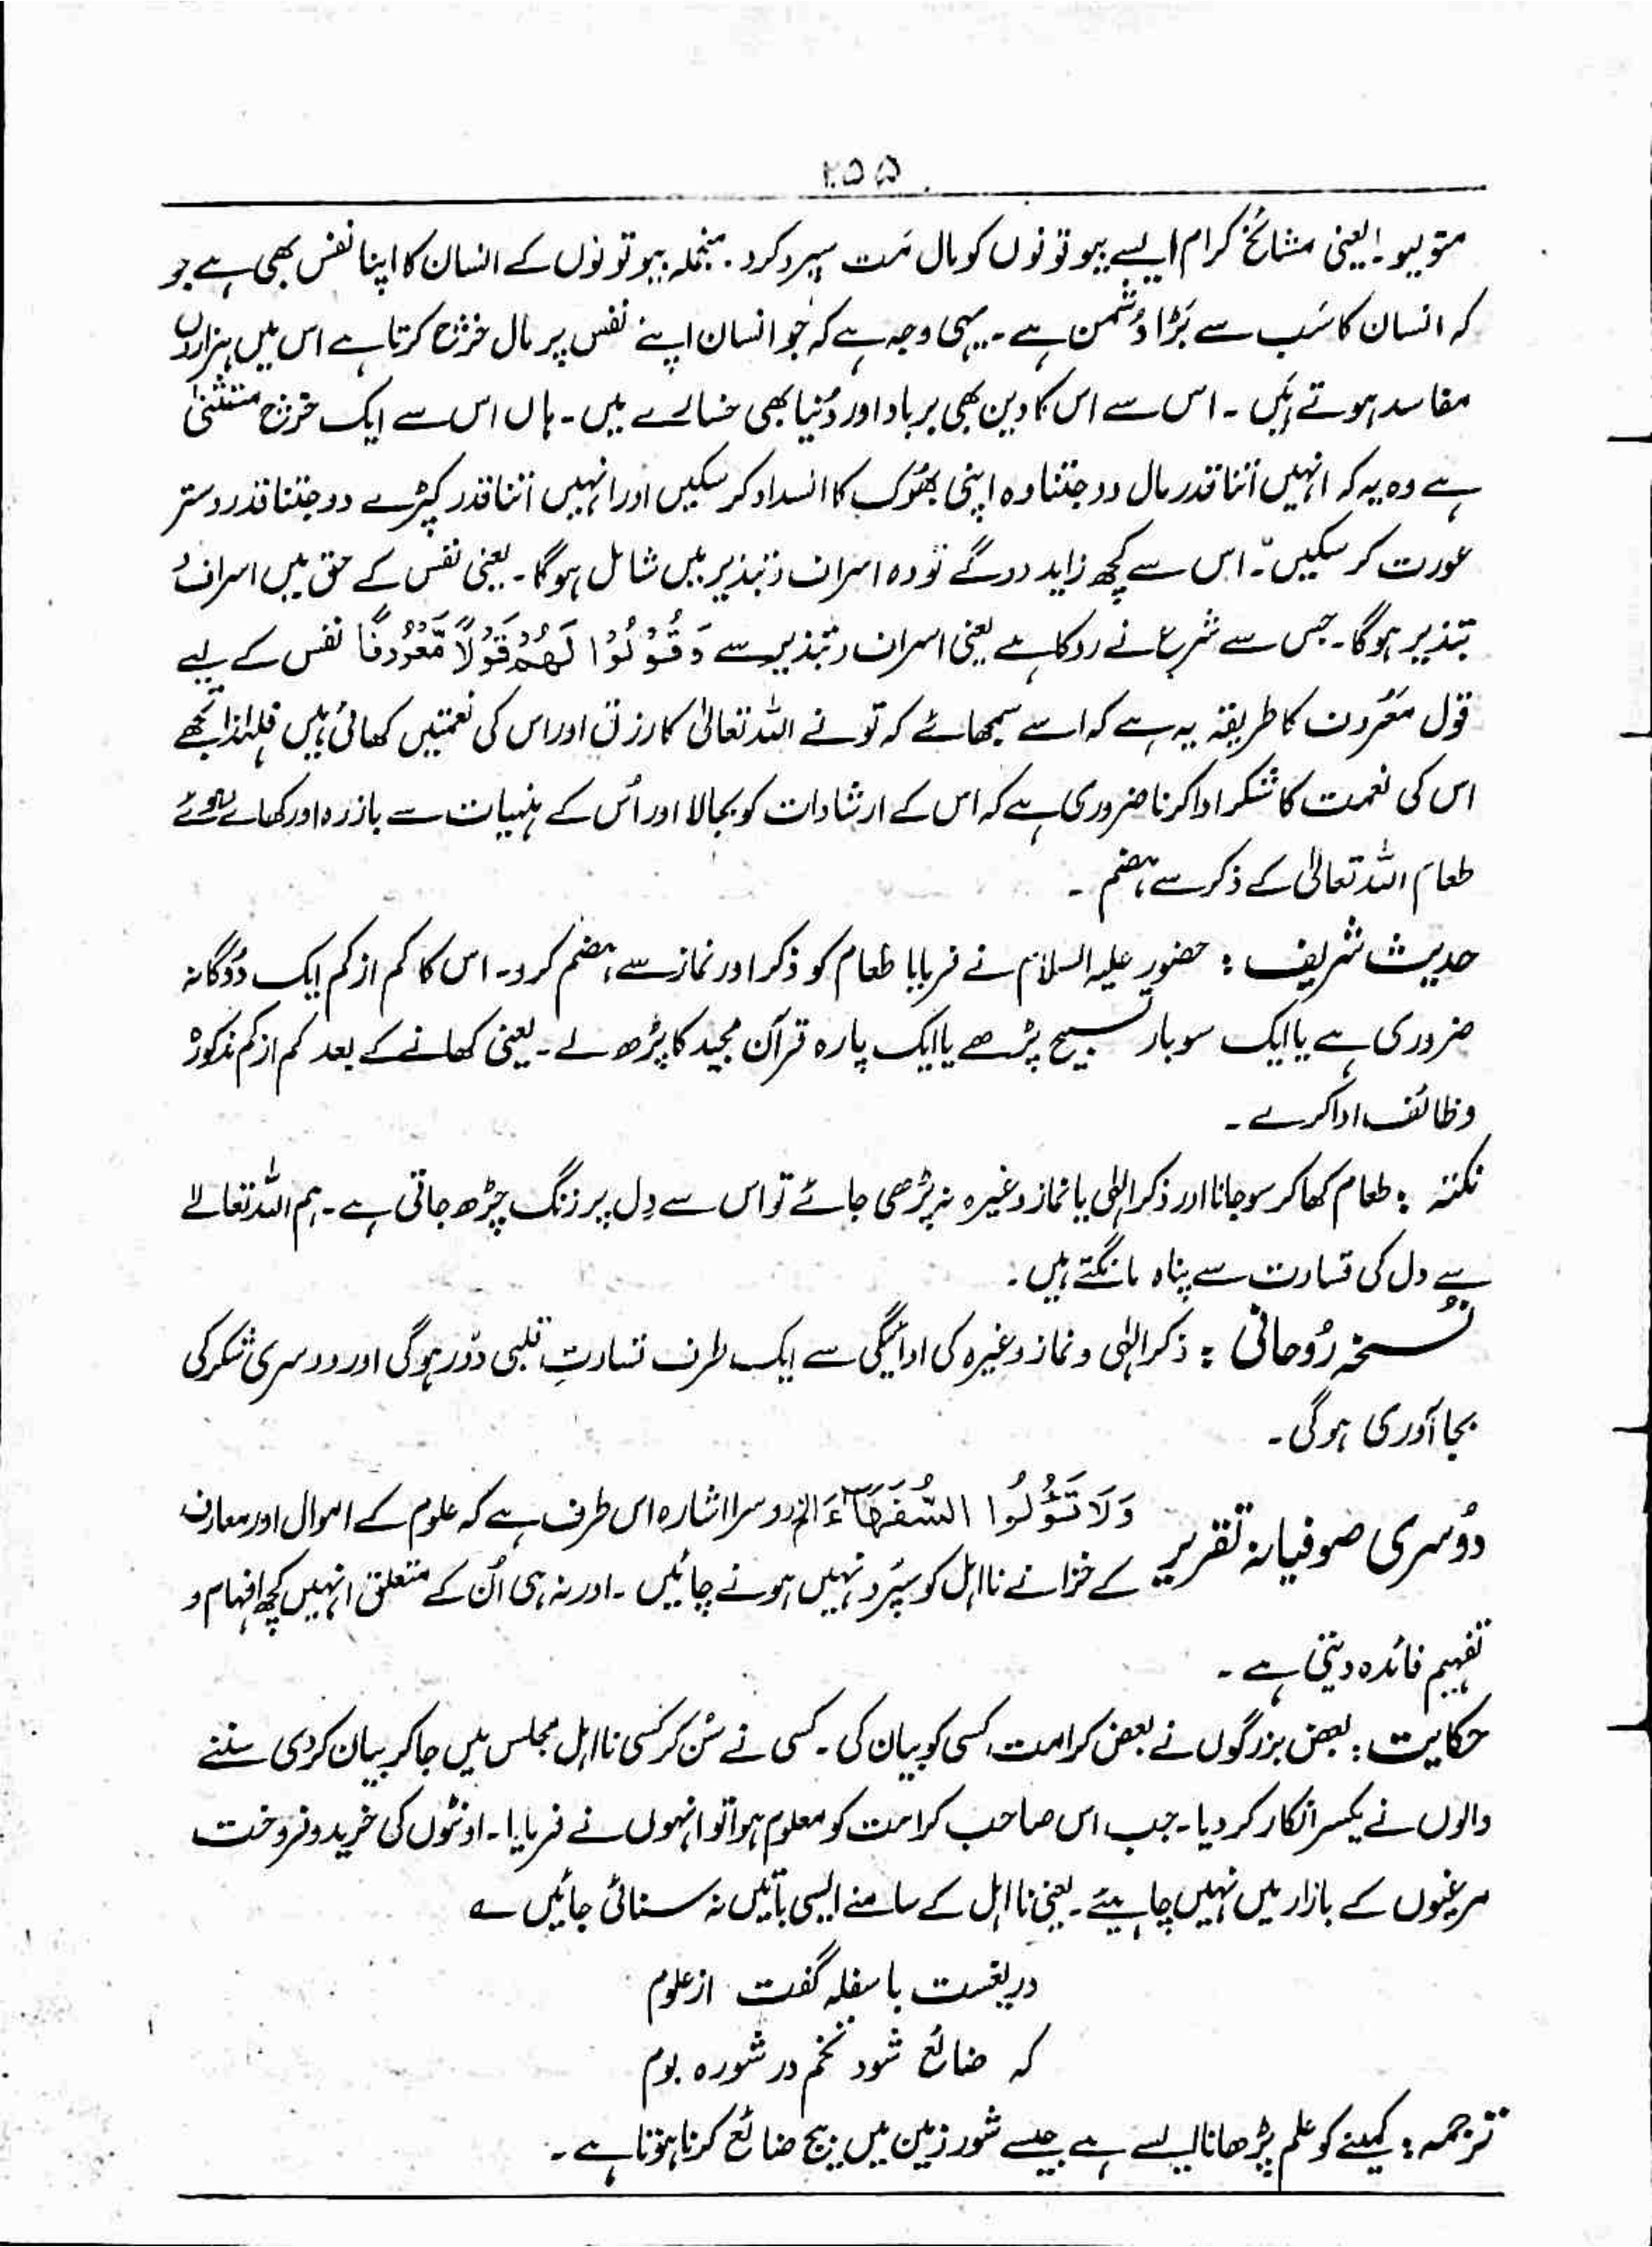 ۲۵۵
متولیو! یعنی مشائخ کرام ایسے بیوقوفوں کو مال مَت سپرد کرو۔ منجملہ بیوقوفوں کے انسان کا اپنا نفس بھی ہے جو
کہ انسان کا سَب سے بَڑا دُشمن ہے۔ یہی وجہ ہے کہ جو انسان اپنے نفس پر مال خرچ کرتا ہے اس میں ہزاروں
مفاسد ہوتے ہَیں۔ اس سے اس کا دین بھی برباد اور دُنیا بھی خسارے میں۔ ہاں اس سے ایک خرچ مستثنیٰ
ہے وہ یہ کہ انہیں اتنا قدر مال دو جتنا وہ اپنی بھُوک کا انسداد کر سکیں اور انہیں اتنا قدر کپڑے دو جتنا قدر وستر
عورت کر سکیں۔ اس سے کچھ زاید دوگے تو وہ اسراف و تبذیر میں شامل ہوگا۔ یعنی نفس کے حق میں اسراف و
تبذیر ہوگا۔ جس سے شرع نے روکا ہے یعنی اسراف و تبذیر سے وَقُوْلُوْا لَهُمْ قَوْلًا مَّعْرُوْفًا نفس کے لیے
قول مَعْروف کا طریقہ یہ ہے کہ اسے سمجھائے کہ تو نے اللہ تعالیٰ کا رزق اور اس کی نعمتیں کھائی ہیں فلہٰذا تجھے
اس کی نعمت کا شکر ادا کرنا ضروری ہے کہ اس کے ارشادات کو بجا لا اور اُس کے منہیات سے باز رہ اور کھائے ہوئے
طعام اللہ تعالیٰ کے ذکر سے ہضم۔
حدیث شریف : حضور علیہ السلام نے فرمایا طعام کو ذکر اور نماز سے ہضم کرو۔ اس کا کم از کم ایک دوگانہ
ضروری ہے یا ایک سو بار تسبیح پڑھے یا ایک پارہ قرآن مجید کا پڑھ لے۔ یعنی کھانے کے بعد کم از کم مذکورہ
وظائف ادا کرے۔
نکتہ : طعام کھا کر سو جانا اور ذکر الٰہی یا نماز وغیرہ نہ پڑھی جائے تو اس سے دِل پر زنگ چڑھ جاتی ہے۔ ہم اللہ تعالےٰ
سے دل کی قساوت سے پناہ مانگتے ہیں۔
نُسخہ رُوحانی : ذکر الٰہی و نماز وغیرہ کی ادائیگی سے ایک طرف قساوتِ قلبی دُور ہوگی اور دوسری شکر کی
بجا آوری ہوگی۔
دُوسری صوفیانہ تقریر وَلَا تُؤْتُوا السُّفَهَآءَ الخ دوسرا اشارہ اس طرف ہے کہ علوم کے اموال اور معارف
کے خزانے نااہل کو سپَرد نہیں ہونے چاہئیں۔ اور نہ ہی اُن کے متعلق انہیں کچھ افہام و
تفہیم فائدہ دیتی ہے۔
حکایت : بعض بزرگوں نے بعض کرامت کسی کو بیان کی۔ کسی نے سُن کر کسی نااہل مجلس میں جا کر بیان کر دی سننے
والوں نے یکسر انکار کر دیا۔ جب اس صاحب کرامت کو معلوم ہوا تو انہوں نے فرمایا۔ اونٹوں کی خرید و فروخت
مرغیوں کے بازار میں نہیں چاہیئے۔ یعنی نااہل کے سامنے ایسی باتیں نہ سنائی جائیں ؎
دریغست با سفلہ گفت از علوم
کہ ضائع شود تخم در شورہ بوم
ترجمہ : کمینے کو علم پڑھانا ایسے ہے جیسے شور زمین میں بیج ضائع کرنا ہوتا ہے۔